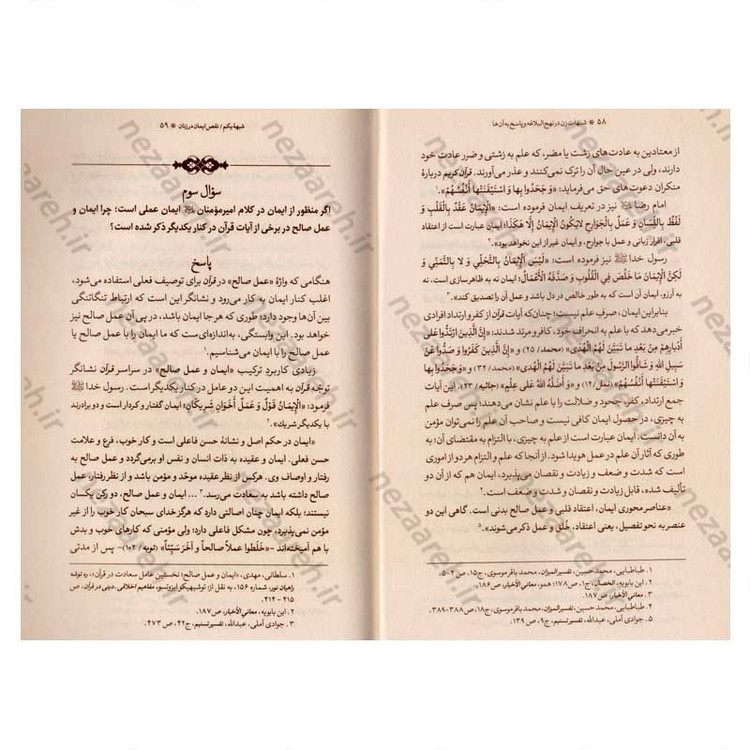 ۵۸ * شبهات زن در نهج البلاغه و پاسخ به آن ها
از معتادین به عادت‌های زشت یا مضر، که علم به زشتی و ضرر عادت خود
دارند، ولی در عین حال آن را ترک نمی‌کنند و عذر می‌آورند. قرآن کریم دربارهٔ
منکران دعوت‌های حق می‌فرماید: «وَ جَحَدُوا بِها وَ اسْتَیْقَنَتْها أَنْفُسُهُمْ».¹
امام رضا نیز در تعریف ایمان فرموده است: «الْإِیمَانُ عَقْدٌ بِالْقَلْبِ وَ
لَفْظٌ بِاللِّسَانِ وَ عَمَلٌ بِالْجَوَارِحِ لایَکُونُ الْإِیمَانُ إِلَّا هَکَذَا؛ ایمان عبارت است از اعتقاد
قلبی، اقرار زبانی و عمل با جوارح، و ایمان غیر از این نخواهد بود».²
رسول خدا نیز فرموده است: «لَیْسَ الْإِیمَانُ بِالتَّحَلِّی وَ لَا بِالتَّمَنِّی وَ
لَکِنَّ الْإِیمَانَ مَا خَلَصَ فِی الْقُلُوبِ وَ صَدَّقَهُ الْأَعْمَالُ؛ ایمان نه به ظاهرسازی است، نه
به آرزو، ایمان آن است که به طور خالص در دل باشد و عمل آن را تصدیق کند».³
بنابراین ایمان، صرف علم نیست؛ چنان‌که آیات قرآن از کفر و ارتداد افرادی
خبر می‌دهد که با علم به انحراف خود، کافر و مرتد شدند: «إِنَّ الَّذِینَ ارْتَدُّوا عَلی
أَدْبارِهِمْ مِنْ بَعْدِ ما تَبَیَّنَ لَهُمُ الْهُدَی» (محمد/ ۲۵) و «إِنَّ الَّذِینَ کَفَرُوا وَ صَدُّوا عَنْ
سَبِیلِ اللَّهِ وَ شَاقُّوا الرَّسُولَ مِنْ بَعْدِ ما تَبَیَّنَ لَهُمُ الْهُدی» (محمد/ ۳۲) و «وَ جَحَدُوا بِها
وَ اسْتَیْقَنَتْها أَنْفُسُهُمْ» (نمل/ ۱۴) و «وَ أَضَلَّهُ اللَّهُ عَلی عِلْمٍ» (جاثیه/ ۲۳). این آیات
جمع ارتداد، کفر، جحود و ضلالت را با علم نشان می‌دهند؛ پس صرف علم
به چیزی، در حصول ایمان کافی نیست و صاحب آن علم را نمی‌توان مؤمن
به آن دانست. ایمان عبارت است از علم به چیزی، با التزام به مقتضای آن؛ به
طوری که آثار آن علم در عمل هویدا شود. از آنجا که علم و التزام هر دو از اموری
است که شدت و ضعف و زیادت و نقصان می‌پذیرد، ایمان هم که از آن دو
تألیف شده، قابل زیادت و نقصان و شدت و ضعف است.⁴
«عناصر محوری ایمان، اعتقاد قلبی و عمل صالح بدنی است. گاهی این دو
عنصر به نحو تفصیل، یعنی اعتقاد، خُلق و عمل ذکر می‌شوند».⁵
۱. طباطبایی، محمد حسین، تفسیر المیزان، محمد باقر موسوی، ج۱۵، ص
۲. ابن بابویه، الخصال، ج۱، ص۱۷۸؛ همو، معانی الأخبار، ص۱۸۶.
۳. معانی الأخبار، ص۱۸۷.
۴. طباطبایی، محمد حسین، تفسیر المیزان، محمد باقر موسوی، ج۱۸، ص۳۸۸-۳۸۹.
۵. جوادی آملی، عبدالله، تفسیر تسنیم، ج۹، ص ۱۳۹.
شبههٔ یکم / نقص ایمان در زنان * ۵۹
سؤال سوم
اگر منظور از ایمان در کلام امیرمؤمنان ایمان عملی است؛ چرا ایمان و
عمل صالح در برخی از آیات قرآن در کنار یکدیگر ذکر شده است؟
پاسخ
هنگامی که واژهٔ «عمل صالح» در قرآن برای توصیف فعلی استفاده می‌شود،
اغلب کنار ایمان به کار می‌رود و نشانگر این است که ارتباط تنگاتنگی
بین آن‌ها وجود دارد؛ طوری که هر جا ایمان باشد، در پی آن عمل صالح نیز
خواهد بود. این وابستگی، به‌اندازه‌ای است که ما ایمان را با عمل صالح یا
عمل صالح را با ایمان می‌شناسیم.¹
زیادی کاربرد ترکیب «ایمان و عمل صالح» در سراسر قرآن نشانگر
توجّه قرآن به اهمیت این دو عامل در کنار یکدیگر است. رسول خدا
فرمود: «الْإِیمَانُ قَوْلٌ وَ عَمَلٌ أَخَوَانِ شَرِیکَانِ؛ ایمان گفتار و کردار است و دو برادرند
با یکدیگر شریک».²
«ایمان در حکم اصل و نشانهٔ حسن فاعلی است و کار خوب، فرع و علامت
حسن فعلی. ایمان و عقیده به ذات انسان و نفس او برمی‌گردد و عمل صالح به
رفتار و اوصاف وی. هرکس از نظر عقیده موحّد و مؤمن باشد و از نظر رفتار، عمل
صالح داشته باشد به سعادت می‌رسد.³ ... ایمان و عمل صالح، دو رکن یکسان
نیستند؛ بلکه ایمان چنان اصالتی دارد که هرگز خدای سبحان کار خوب را از غیر
مؤمن نمی‌پذیرد، چون مشکل فاعلی دارد؛ ولی مؤمنی که کارهای خوب و بدش
با هم آمیخته‌اند -«خَلَطُوا عَمَلاً صالِحاً وَ آخَرَ سَیِّئاً» (توبه/ ۱۰۲)- پس از مدتی
۱. سلمانی، مهدی، «ایمان و عمل صالح؛ نخستین عامل سعادت در قرآن»، ره توشه
راهیان نور، شماره ۱۵۶، به نقل از: توشیهیکو ایزوتسو، مفاهیم اخلاقی ـ دینی در قرآن، ص
۴۱۴-۴۱۵.
۲. ابن بابویه، معانی الأخبار، ص۱۸۷.
۳. جوادی آملی، عبدالله، تفسیر تسنیم، ج۲۲، ص ۴۷۳.
nezaareh.ir